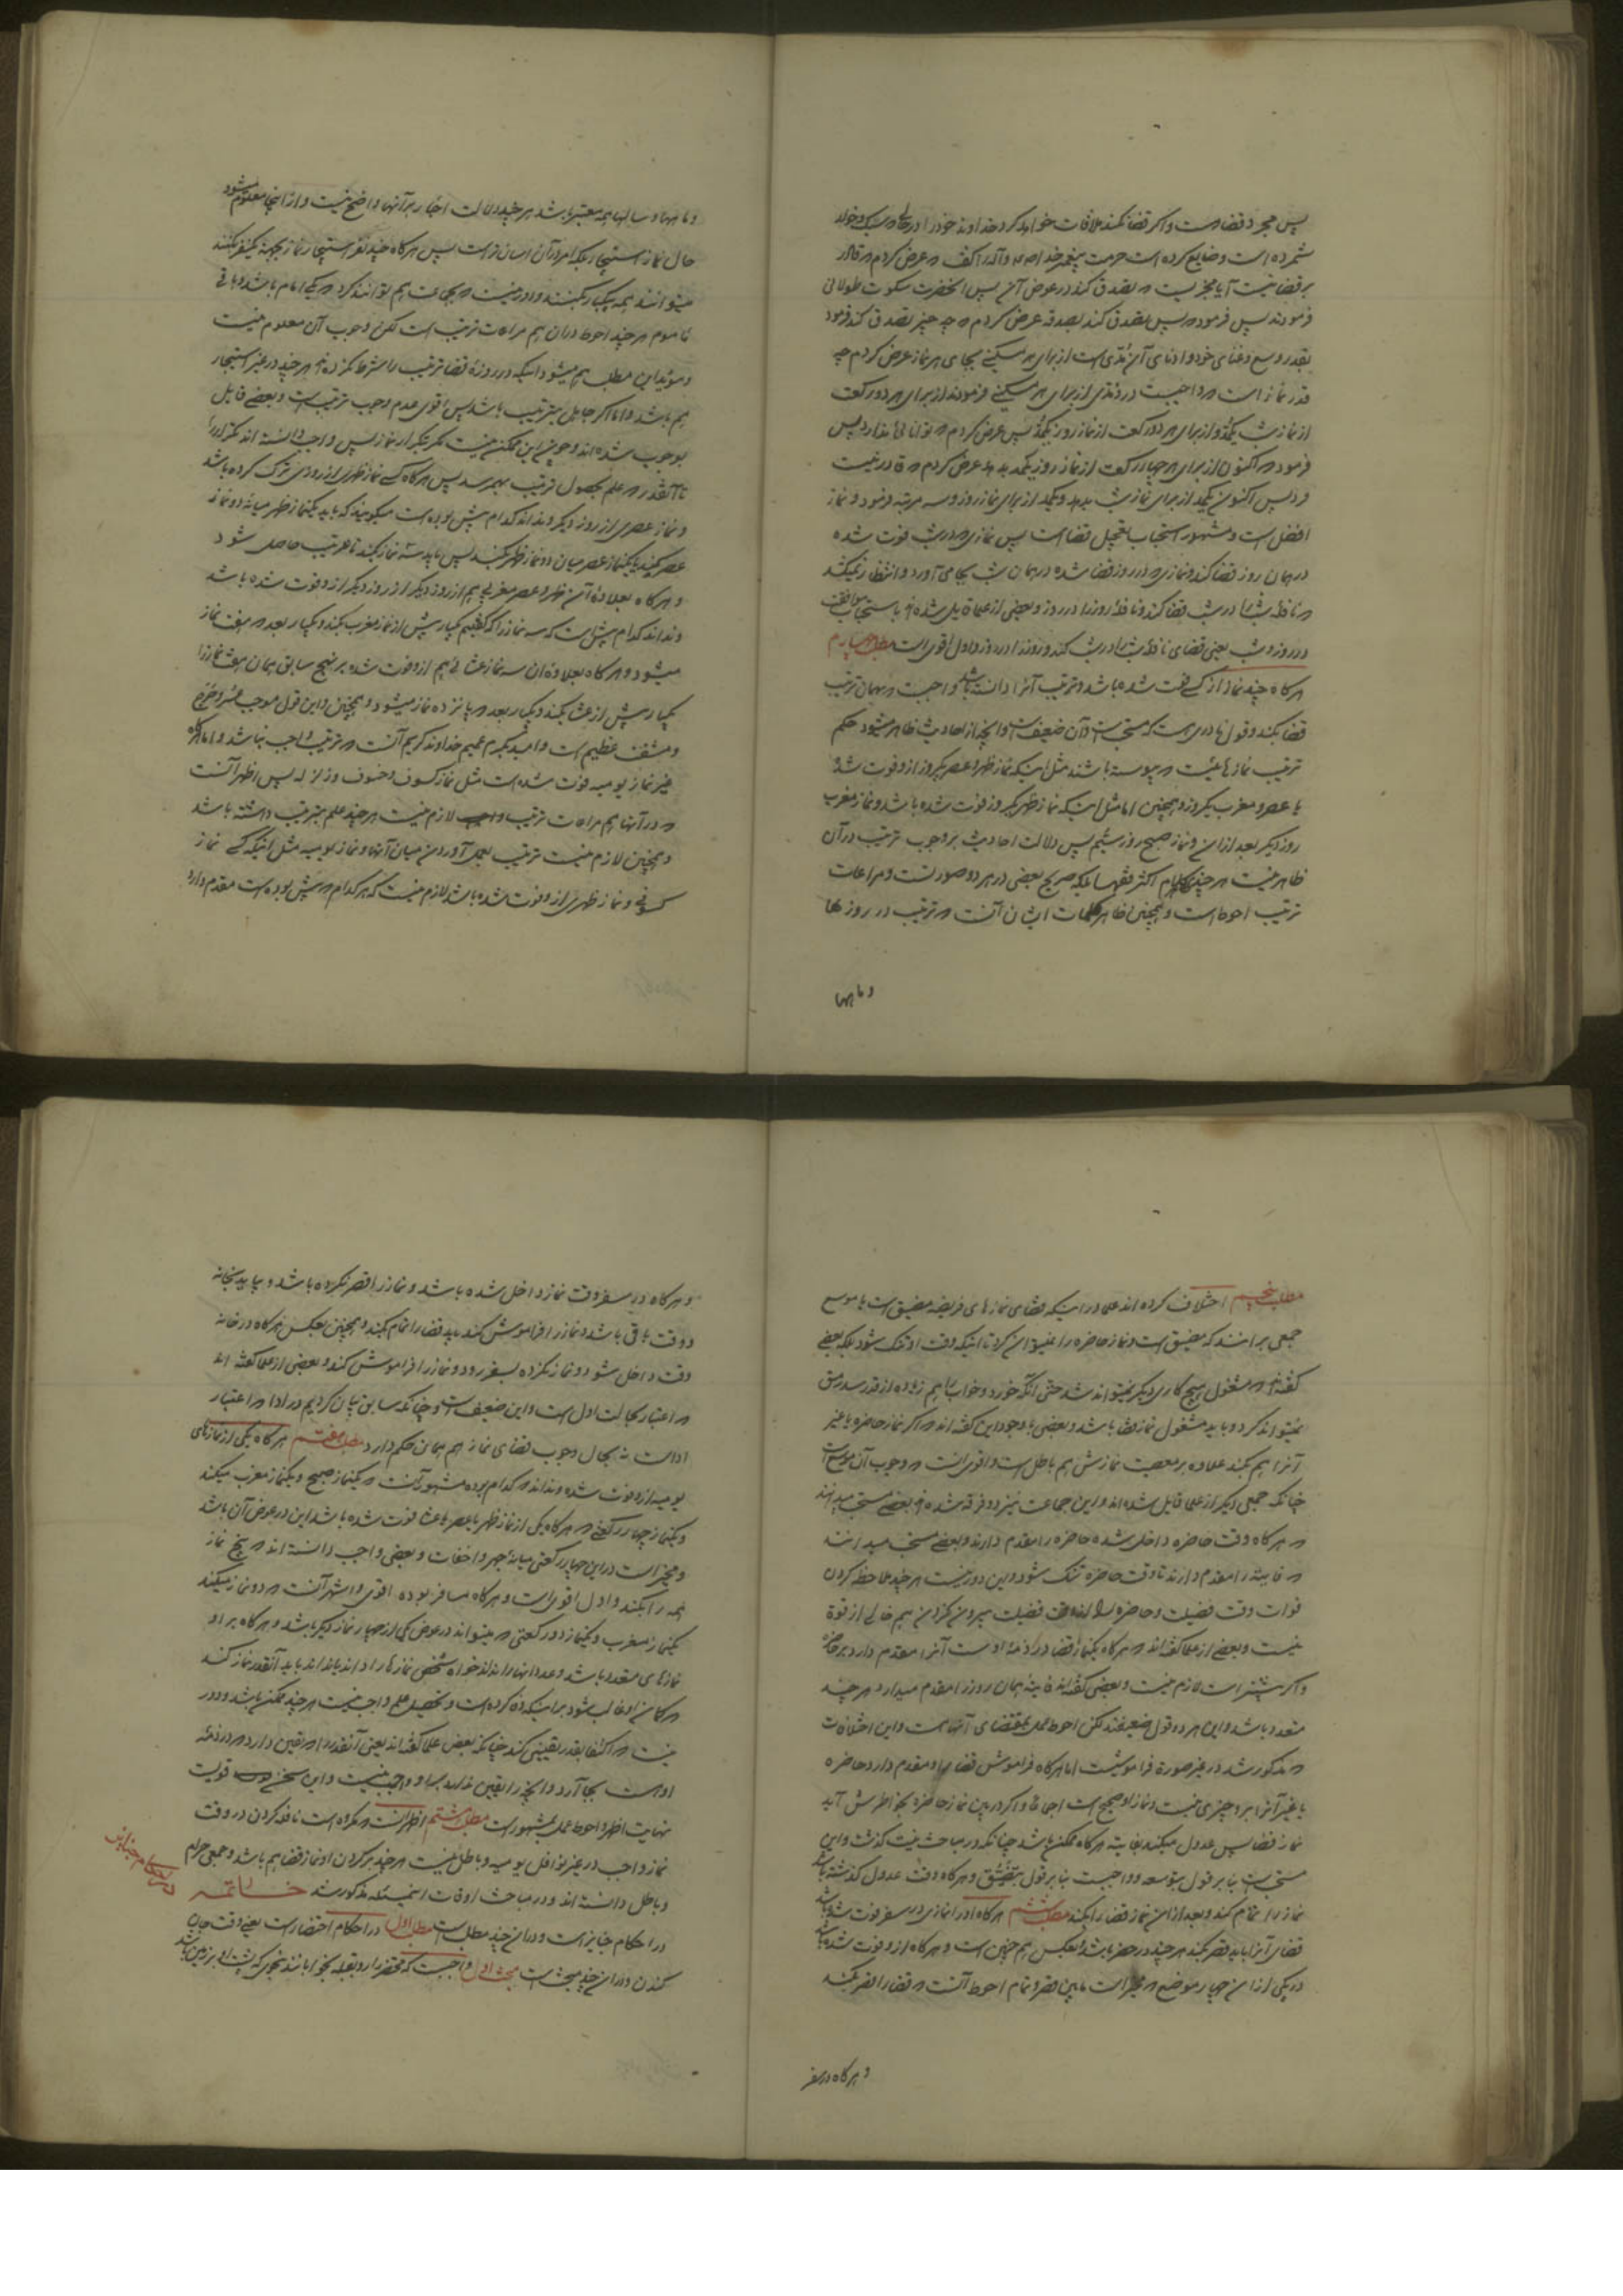 پس مجرد قضاست و اگر قضا نکند ملاقات خواهد کرد خداوند خود را در حالتی که سبک و خوار
شمرده است و ضایع کرده است حرمت پیغمبر خدا را عرض کردم که قادر
بر قضا نیست آیا مجزیست که تصدق کند در عوض آن پس آنحضرت سکوت طولانی
فرمودند پس فرمود که پس تصدق کند بصدقه عرض کردم که چه چیز تصدق کند فرمود
بقدر وسع و غنای خود و ادنای آن مدیست از برای هر مسکینی بجای هر نماز عرض کردم چه
قدر نماز است که واجبست در او مدی از برای هر مسکینی فرمودند از برای هر دو رکعت
از نماز شب یکمد و از برای هر دو رکعت از نماز روز یکمد پس عرض کردم که توانائی ندارد پس
فرمود که اکنون از برای هر چهار رکعت از نماز روز یکمد بدهد عرض کردم که قادر نیست
فرمود پس اکنون یکمد از برای نماز شب بدهد و یکمد از برای نماز روز و سه مرتبه فرمود و نماز
افضل است و مشهور استحباب تعجیل قضا است پس نمازی که در شب فوت شده
در همان روز قضا کند و نمازی که در روز قضا شده در همان شب بجا می آورد و انتظار نمیکشد
که نافله شب را در شب قضا کند و نافله روز را در روز و بعضی از علما قایل شده اند باستحباب موافقت
در روز و شب یعنی قضای نافله شب را در شب کند و روز را در روز و اول اقوی است مطلب چهارم
هرگاه چند نماز از کسی فوت شده باشد و ترتیب آنرا دانسته باشد واجبست که بهمان ترتیب
قضا بکند و قول نادری هست که مستحب است و آن ضعیف است و آنچه از احادیث ظاهر میشود حکم
ترتیب نمازهائیست که پیوسته باشند مثل اینکه نماز ظهر و عصر یکروز از او فوت شد
یا عصر و مغرب یکروز و همچنین اما مثل اینکه نماز ظهر یکروز فوت شده باشد و نماز مغرب
روز دیگر بعد از آن و نماز صبح روز سیّم پس دلالت احادیث بر وجوب ترتیب در آن
ظاهر نیست هر چند کلام اکثر فقها بلکه صریح بعضی در هر دو صورتست و مراعات
ترتیب احوط است و همچنین ظاهر کلمات ایشان آنست که ترتیب در روزها
و ماهها
و ماهها و سالها همه معتبر باشد هر چند دلالت اخبار بر آنها واضح نیست و از اینجا معلوم میشود
حال نماز استیجار بلکه امر در آن اسان تر است پس هرگاه چند نفر استیجار نماز بجهة یکنفر بکنند
میتوانند همه بیکبار بکنند و دور نیست که بجماعت هم توانند کرد که یکی امام باشد و باقی
ماموم هر چند احوط در آن هم مراعات ترتیب است لکن وجوب آن معلوم نیست
و مؤید این مطلب هم میشود اینکه در روزۀ قضا ترتیب را شرط نکرده اند هر چند در غیر استیجار
هم باشد و اما اگر جاهل بترتیب باشد پس اقوی عدم وجوب ترتیب است و بعضی قایل
بوجوب شده اند و چون این ممکن نیست مگر بتکرار نماز پس واجب دانسته اند تکرار را
تا آنقدر که علم بحصول ترتیب بهم رسد پس هرگاه کسی نماز ظهری از روزی ترک کرده باشد
و نماز عصری از روز دیگر و نداند کدام پیش بوده است میگویند که باید یکنماز ظهر میانه دو نماز
عصر بکند یا یکنماز عصر میان دو نماز ظهر بکند پس باید سه نماز بکند تا ترتیب حاصل شود
و هرگاه بعلاوۀ آن ظهر و عصر مغربی هم از روز دیگر از او فوت شده باشد
و نداند کدام پیش است که سه نماز را که گفتیم یکبار پیش از نماز مغرب بکند و یکبار بعد که هفت نماز
میشود و هرگاه بعلاوه آن سه نماز عشائی هم از او فوت شده بر نهج سابق همان هفت نماز را
یکبار پیش از عشا بکند و یکبار بعد که پانزده نماز میشود و همچنین و این قول موجب عسر و حرج
و مشقت عظیم است و امید بکرم عمیم خداوند کریم آنست که ترتیب واجب نباشد و اما هرگاه
غیر نماز یومیه فوت شده است مثل نماز کسوف و خسوف و زلزله پس اظهر آنست
که در آنها هم مراعات ترتیب لازم نیست هر چند علم بترتیب داشته باشد
و همچنین لازم نیست ترتیب بعمل آوردن میان آنها و نماز یومیه مثل اینکه کسی نماز
کسوفی و نماز ظهری از او فوت شده باشد لازم نیست که هر کدام که پیش بوده است مقدم دارد
مطلب پنجم اختلاف کرده اند علما در اینکه قضای نمازهای فریضه مضیق است یا موسع
جمعی بر آنند که مضیق است و نماز حاضره را نمیتوان کرد تا اینکه وقت او تنگ شود بلکه بعضی
گفته اند که مشغول هیچ کاری دیگر نمیتواند شد حتی آنکه خورد و خواب را هم زیاده از قدر سد رمق
نمیتواند کرد و باید مشغول نماز قضا باشد و بعضی با وجود این گفته اند که اگر نماز حاضره یا غیر
آنرا هم بکند علاوه بر معصیت نمازش هم باطل است و اقوی آنست که وجوب آن موسع است
چنانکه جمعی دیگر از علما قایل شده اند و این جماعت نیز دو فرقه شده اند بعضی مستحب میدانند
که هرگاه وقت حاضره داخل شده حاضره را مقدم دارند و بعضی مستحب میدانند
که فایته را مقدم دارند تا وقت حاضره تنگ شود و این دور نیست هر چند ملاحظه کردن
فوات وقت فضیلت و حاضره را از وقت فضیلت بیرون نکردن هم خالی از قوة
نیست و بعضی از علما گفته اند که هرگاه یکنماز قضا در ذمۀ اوست آنرا مقدم دارد بر حاضره
و اگر بیشتر است لازم نیست و بعضی گفته اند فایتۀ همان روز را مقدم میدارد هر چند
متعدد باشد و این هر دو قول ضعیفند لکن احوط عمل بمقتضای آنهاست و این اختلافات
که مذکور شد در غیر صورة فراموشیست اما هرگاه فراموش قضا را و مقدم دارد حاضره
یا غیر آنرا بر او چیزی نیست و نماز او صحیح است اجماعا و اگر در بین نماز حاضره بخاطرش آید
نماز قضا پس عدول میکند بفایته هرگاه ممکن باشد چنانکه در مباحث نیت گذشت و این
مستحب است بنا بر قول بتوسعه و واجبست بنا بر قول بتضییق و هرگاه وقت عدول گذشته باشد
نماز را تمام کند و بعد از آن نماز قضا را بکند مطلب ششم هرگاه او را نمازی در سفر فوت شده باشد
قضای آنرا باید قصر بکند هر چند در حضر باشد و بعکس هم چنین است و هرگاه از او فوت شده باشد
در یکی از آن چهار موضع که مخیر است مابین قصر و تمام احوط آنست که قضا را قصر بکند
و هرگاه در سفر
و هرگاه در سفر وقت نماز داخل شده باشد و نماز را قصر نکرده باشد و بیاید بخانه
و وقت باقی باشد و نماز را فراموش کند باید قضا را تمام بکند و همچنین بعکس هرگاه در خانه
وقت داخل شود و نماز نکرده بسفر رود و نماز را فراموش کند و بعضی از علما گفته اند
که اعتبار بحالت اول است و این ضعیف است و چنانکه سابق بیان کردیم در ادا که اعتبار
اداست نه بحال وجوب قضای نماز هم همان حکم دارد مطلب هفتم هرگاه یکی از نمازهای
یومیه از او فوت شده و نداند که کدام بوده مشهور آنست که یکنماز صبح و یکنماز مغرب میکند
و یکنماز چهار رکعتی که هرگاه یکی از نماز ظهر یا عصر یا عشا فوت شده باشد این در عوض آن باشد
و مخیر است در این چهار رکعتی میانۀ جهر و اخفات و بعضی واجب دانسته اند که پنج نماز
همه را بکند و اول اقوی است و هرگاه مسافر بوده اقوی و اشهر آنست که دو نماز میکند
یکنماز مغرب و یکنماز دو رکعتی که میتواند در عوض یکی از چهار نماز دیگر باشد و هرگاه بر او
نمازهای متعدد باشد و عدد آنها را نداند خواه شخص نمازها را داند یا نداند باید آنقدر نماز کند
که گمان او غالب شود بر اینکه وفا کرده است و تحصیل علم واجب نیست هر چند ممکن باشد و دور
نیست که اکتفا بقدر یقینی کند چنانکه بعض علما گفته اند یعنی آنقدر را که یقین دارد که در ذمۀ
اوست بجا آرد و آنچه را یقین ندارد بر او واجب نیست و این سخن قویست
نهایت اظهر و احوط عمل بمشهور است مطلب هشتم اظهر آنست که مکروه است نافله کردن در وقت
نماز واجب در غیر نوافل یومیه و باطل نیست هر چند بر گردن او نماز قضا هم باشد و جمعی حرام
و باطل دانسته اند و در مباحث اوقات این مسئله مذکور شد خاتمه
در احکام جنایز است و در آن چند مطلب است مطلب اول در احکام احتضار است یعنی وقت جان
کندن و در آن چند مبحث است مبحث اول واجبست که محتضر را رو بقبله بخوابانند بنحوی که پشت او بر زمین باشد
در احکام جنایز